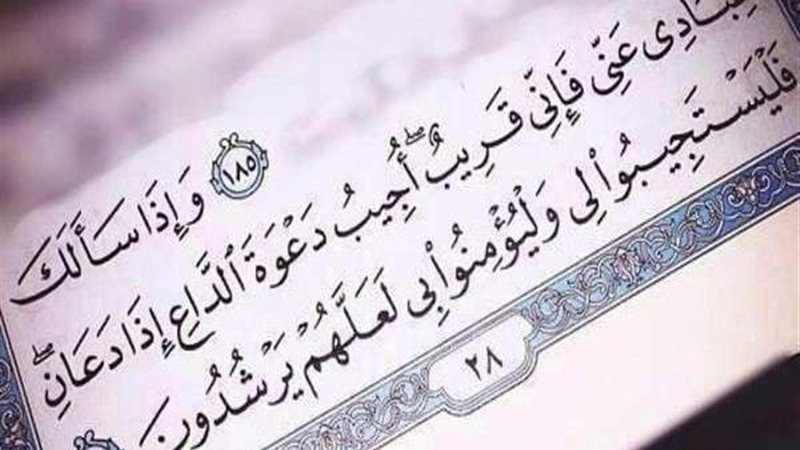 ١٨٥ وَإِذَا سَأَلَكَ
عِبَادِى عَنِّى فَإِنِّى قَرِيبٌ ۖ أُجِيبُ دَعْوَةَ ٱلدَّاعِ إِذَا دَعَانِ ۖ
فَلْيَسْتَجِيبُوا۟ لِى وَلْيُؤْمِنُوا۟ بِى لَعَلَّهُمْ يَرْشُدُونَ
٢٨